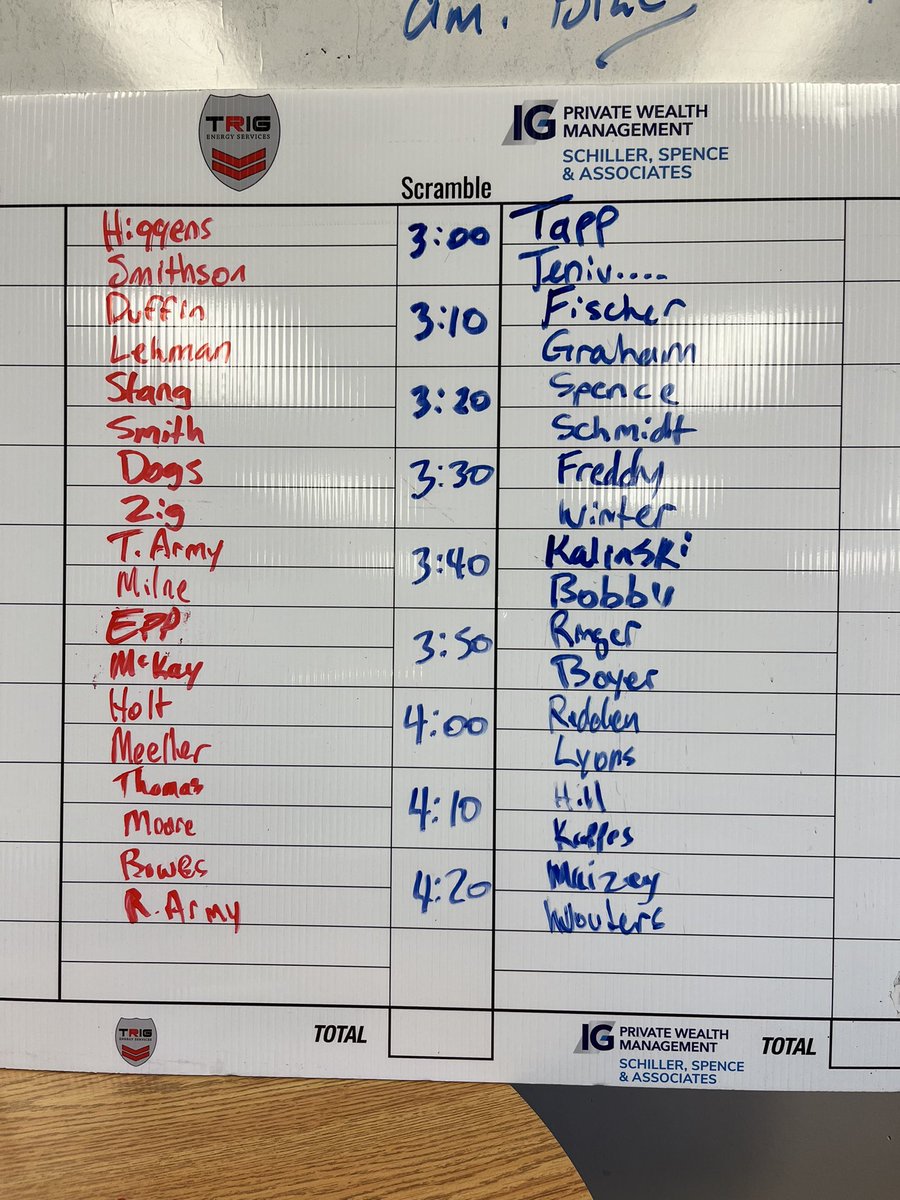 am.
TRIG
ENERGY SERVICES
IG PRIVATE WEALTH
MANAGEMENT
SCHILLER, SPENCE
& ASSOCIATES
Scramble
Higgens 3:00 Tapp
Smithson Teniv....
Duffin 3:10 Fischer
Lehman Graham
Stang 3:20 Spence
Smith Schmidt
Dogs 3:30 Freddy
Zig Winter
T. Army 3:40 Kalinski
Milne Bobby
EPP 3:50 Ringer
McKay Boyer
Holt 4:00 Redden
Lyons
Thomas 4:10 Hill
Moore
Bowes 4:20 Maizey
R. Army Wouters
TRIG
ENERGY SERVICES
TOTAL
IG PRIVATE WEALTH
MANAGEMENT
SCHILLER, SPENCE
& ASSOCIATES
TOTAL